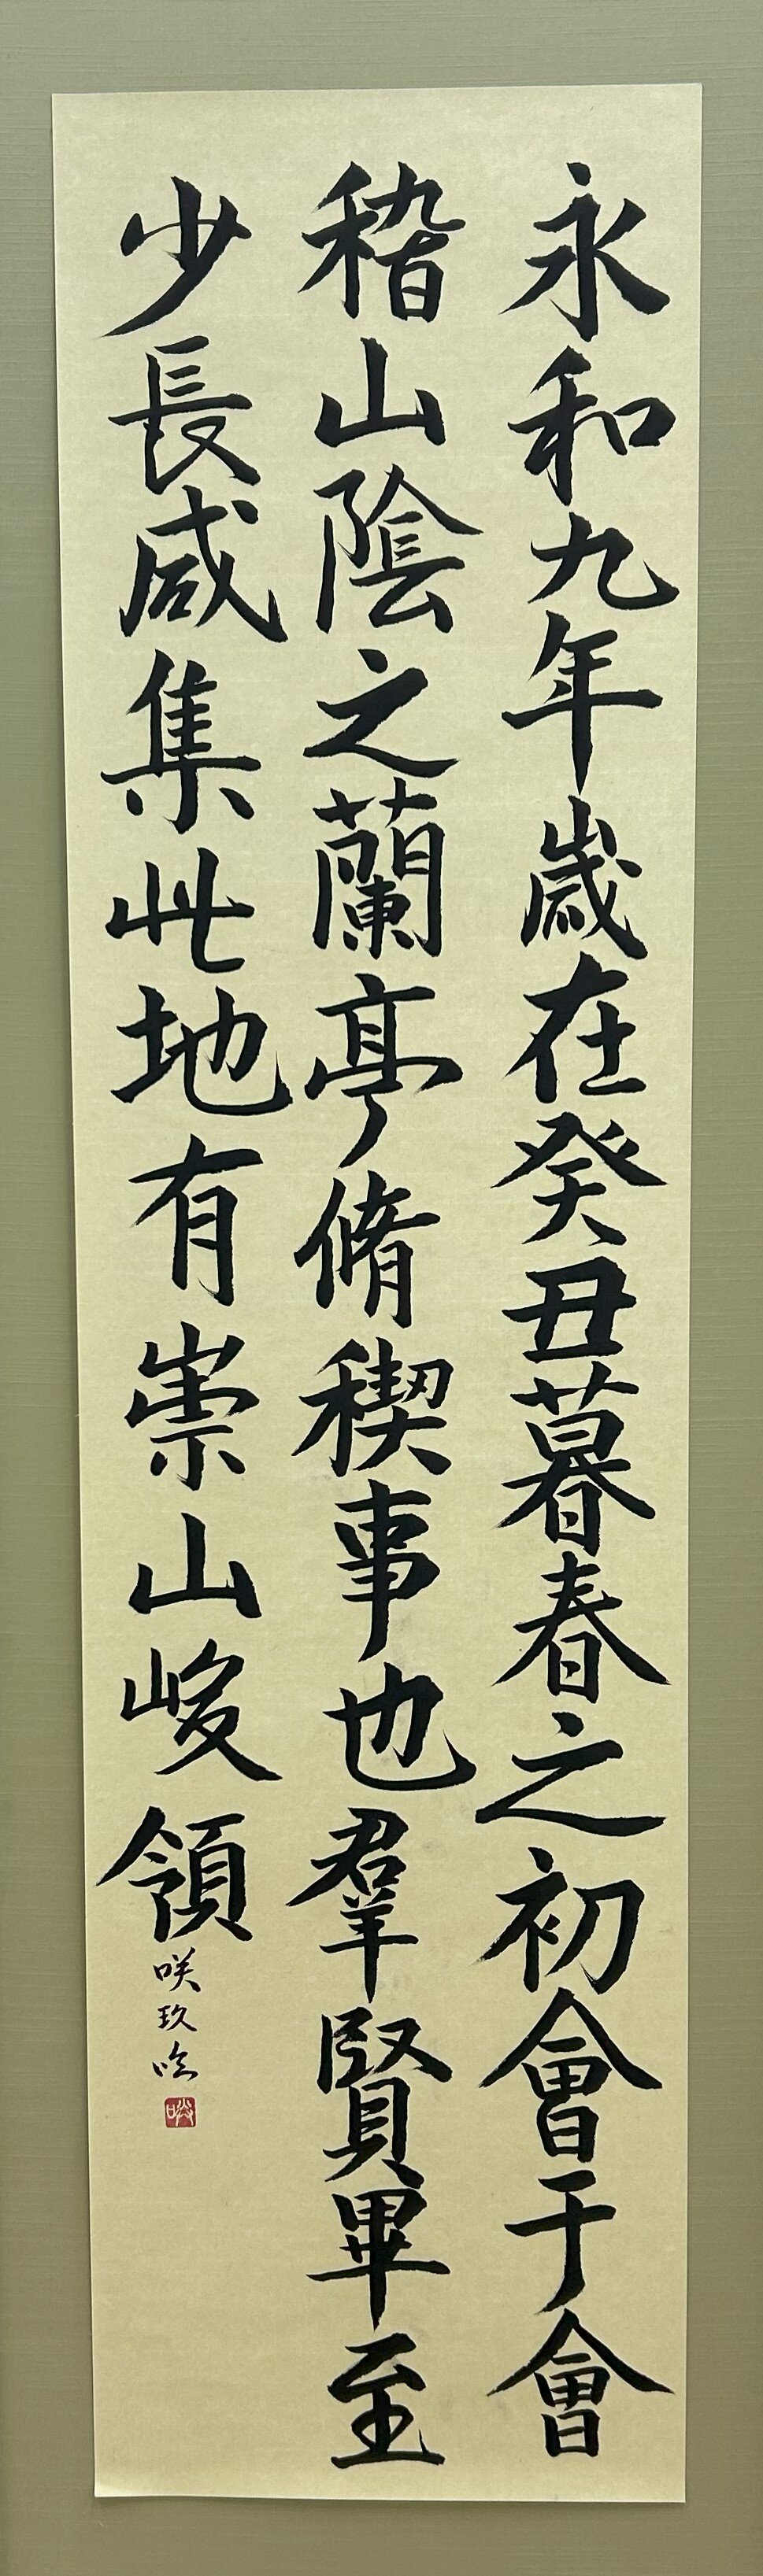 永和九年歳在癸丑暮春之初會于會
稽山陰之蘭亭脩稧事也羣賢畢至
少長咸集此地有崇山峻領
咲玖